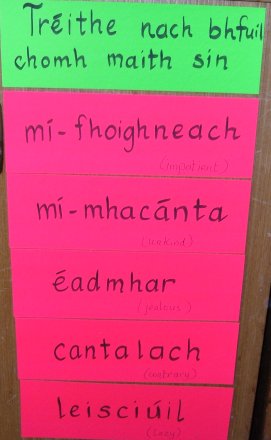 Tréithe nach bhfuil
chomh maith sin
mí-fhoighneach
(impatient)
mí-mhacánta
(unkind)
éadmhar
(jealous)
cantalach
(contrary)
leisciúil
(lazy)